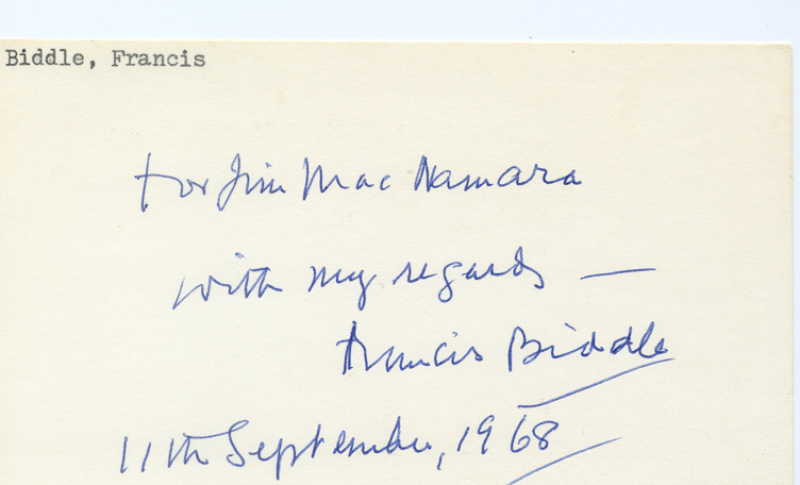 Biddle, Francis
For Jim Mac Namara
with my regards —
Francis Biddle
11th September, 1968